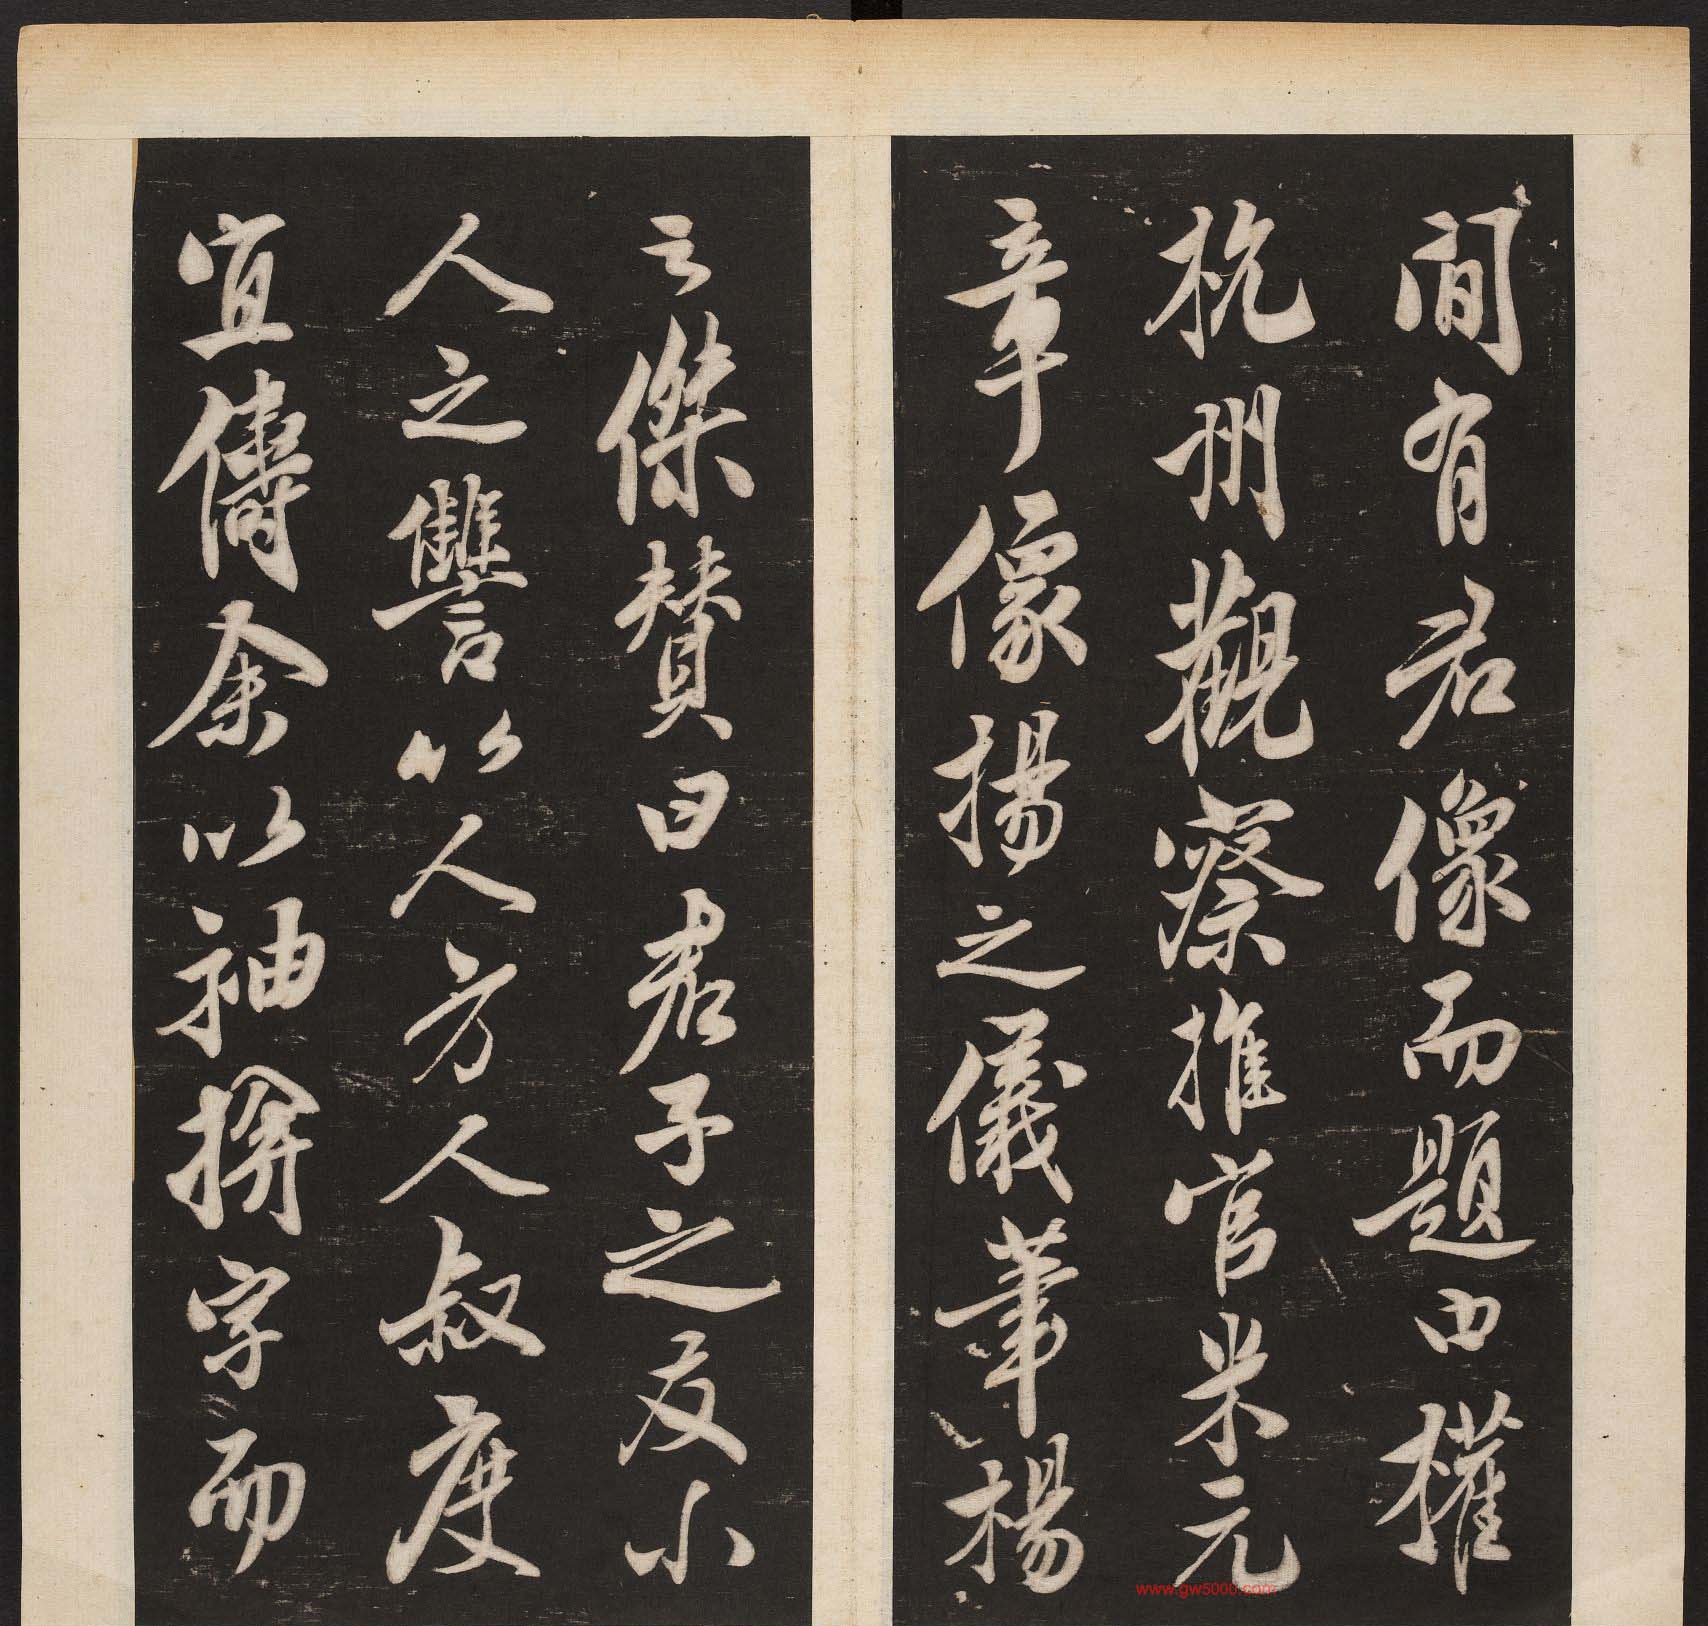 間有君像而題曰權
杭州觀察推官米元
章像揚之儀華楊
之傑賛曰君子之友小
人之讐以人方人叔度
宜儔余以袖揜字而
www.gw5000.com